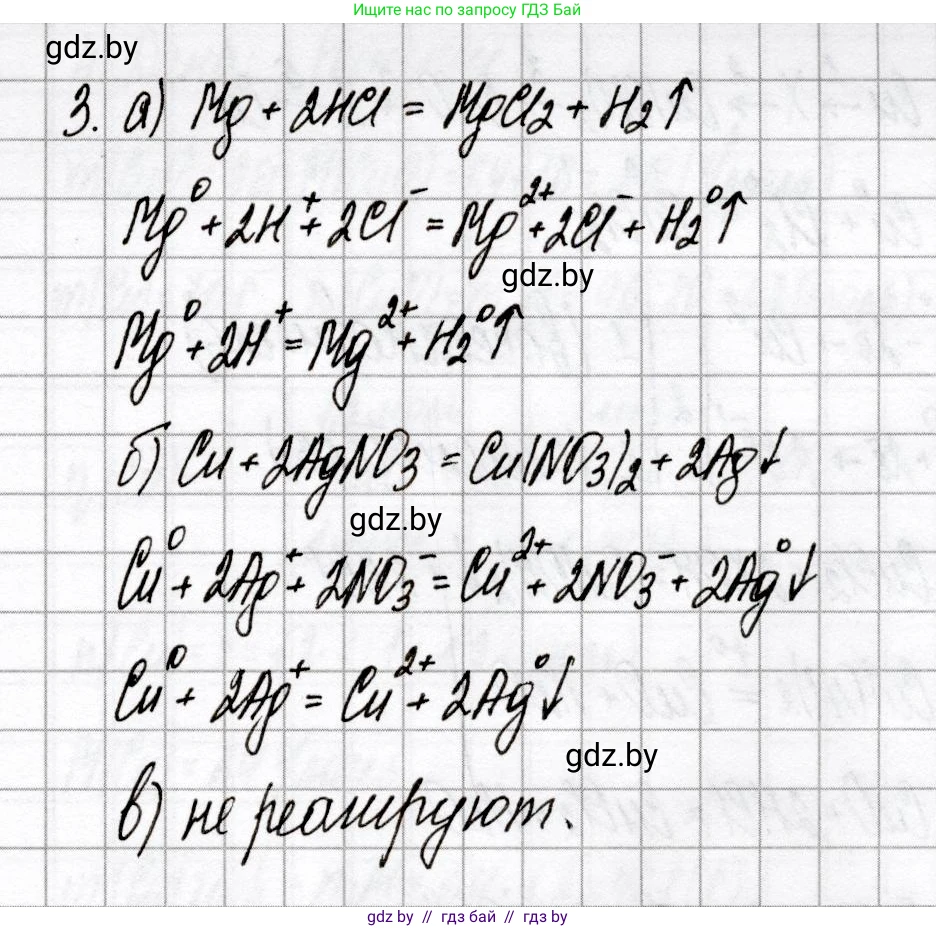 Ищите нас по запросу ГДЗ Бай
gdz.by
3. а) Mg + 2HCl = MgCl₂ + H₂↑
Mg⁰ + 2H⁺ + 2Cl⁻ = Mg²⁺ + 2Cl⁻ + H₂⁰↑
gdz.by
Mg⁰ + 2H⁺ = Mg²⁺ + H₂⁰↑
б) Cu + 2AgNO₃ = Cu(NO₃)₂ + 2Ag↓
gdz.by
Cu⁰ + 2Ag⁺ + 2NO₃⁻ = Cu²⁺ + 2NO₃⁻ + 2Ag⁰↓
Cu⁰ + 2Ag⁺ = Cu²⁺ + 2Ag⁰↓
gdz.by
в) не реагируют.
gdz by // гдз бай // gdz by